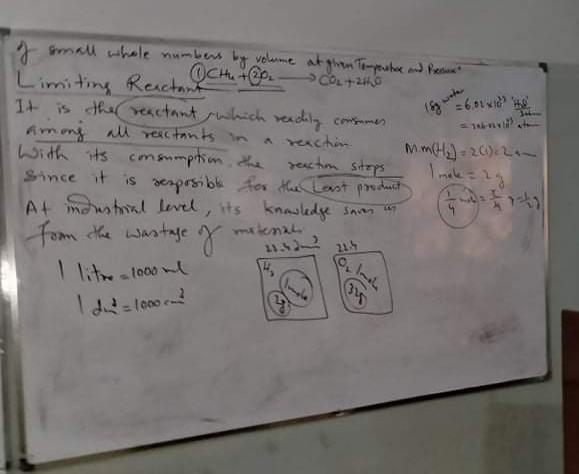 of small whole numbers by volume at given Temperature and Pressure
Limiting Reactant ① CH4 + ② O2 → CO2 + 2H2O
It is the reactant, which readily consumes
among all reactants in a reaction
With its consumption, the reaction stops
Since it is responsible for the Least product
At industrial level, its knowledge saves us
from the wastage of material.
1 litre = 1000 ml
1 dm³ = 1000 cm³
22.4 dm³
H2 1 mole
2g
22.4
O2 1 mole
32g
18g water = 6.02 x 10²³ H2O
M.m(H2) = 2(1) = 2
1 mole = 2 g
1/4 mole = 2/4 g = 1/2 g